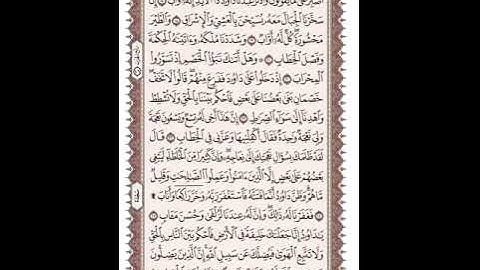 اصبر على ما يقولون واذكر عبدنا داوود ذا الأيد إنه أواب ١٧ إنا
سخرنا الجبال معه يسبحن بالعشي والإشراق ١٨ والطير
محشورة كل له أواب ١٩ وشددنا ملكه وءاتينه الحكمة
وفصل الخطاب ٢٠ وهل أتىك نبؤا الخصم إذ تسوروا
المحراب ٢١ إذ دخلوا على داوود ففزع منهم قالوا لا تخف
خصمان بغى بعضنا على بعض فاحكم بيننا بالحق ولا تشطط
واهدنا إلى سواء الصرط ٢٢ إن هذا أخي له تسع وتسعون نعجة
ولي نعجة وحدة فقال أكفلنيها وعزني في الخطاب ٢٣ قال
لقد ظلمك بسؤال نعجتك إلى نعاجه وإن كثيرا من الخلطاء ليبغي
بعضهم على بعض إلا الذين ءامنوا وعملوا الصلحت وقليل
ما هم وظن داوود أنما فتنه فاستغفر ربه وخر راكعا وأناب ۩
٢٤ فغفرنا له ذلك وإن له عندنا لزلفى وحسن مئاب ٢٥
يداوود إنا جعلنك خليفة في الأرض فاحكم بين الناس بالحق
ولا تتبع الهوى فيضلك عن سبيل الله إن الذين يضلون